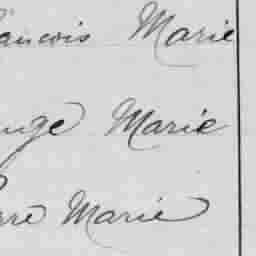 ançois Marie
ange Marie
erre Marie